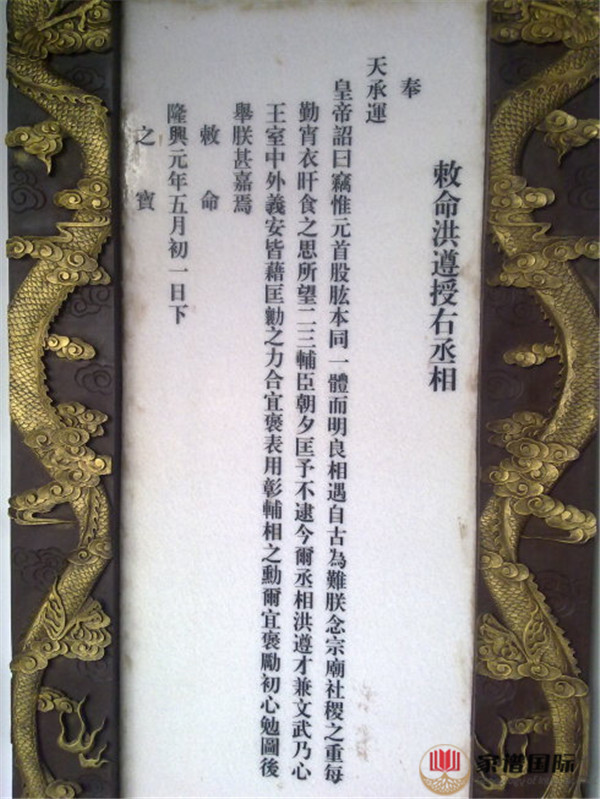 敕命洪遵授右丞相
奉
天承運
皇帝詔曰竊惟元首股肱本同一體而明良相遇自古為難朕念宗廟社稷之重每
勤宵衣旰食之思所望二三輔臣朝夕匡予不逮今爾丞相洪遵才兼文武乃心
王室中外義安皆藉匡勷之力合宜褒表用彰輔相之勳爾宜褒勵初心勉圖後
舉朕甚嘉焉
敕命
隆興元年五月初一日下
之寶
家谱国际